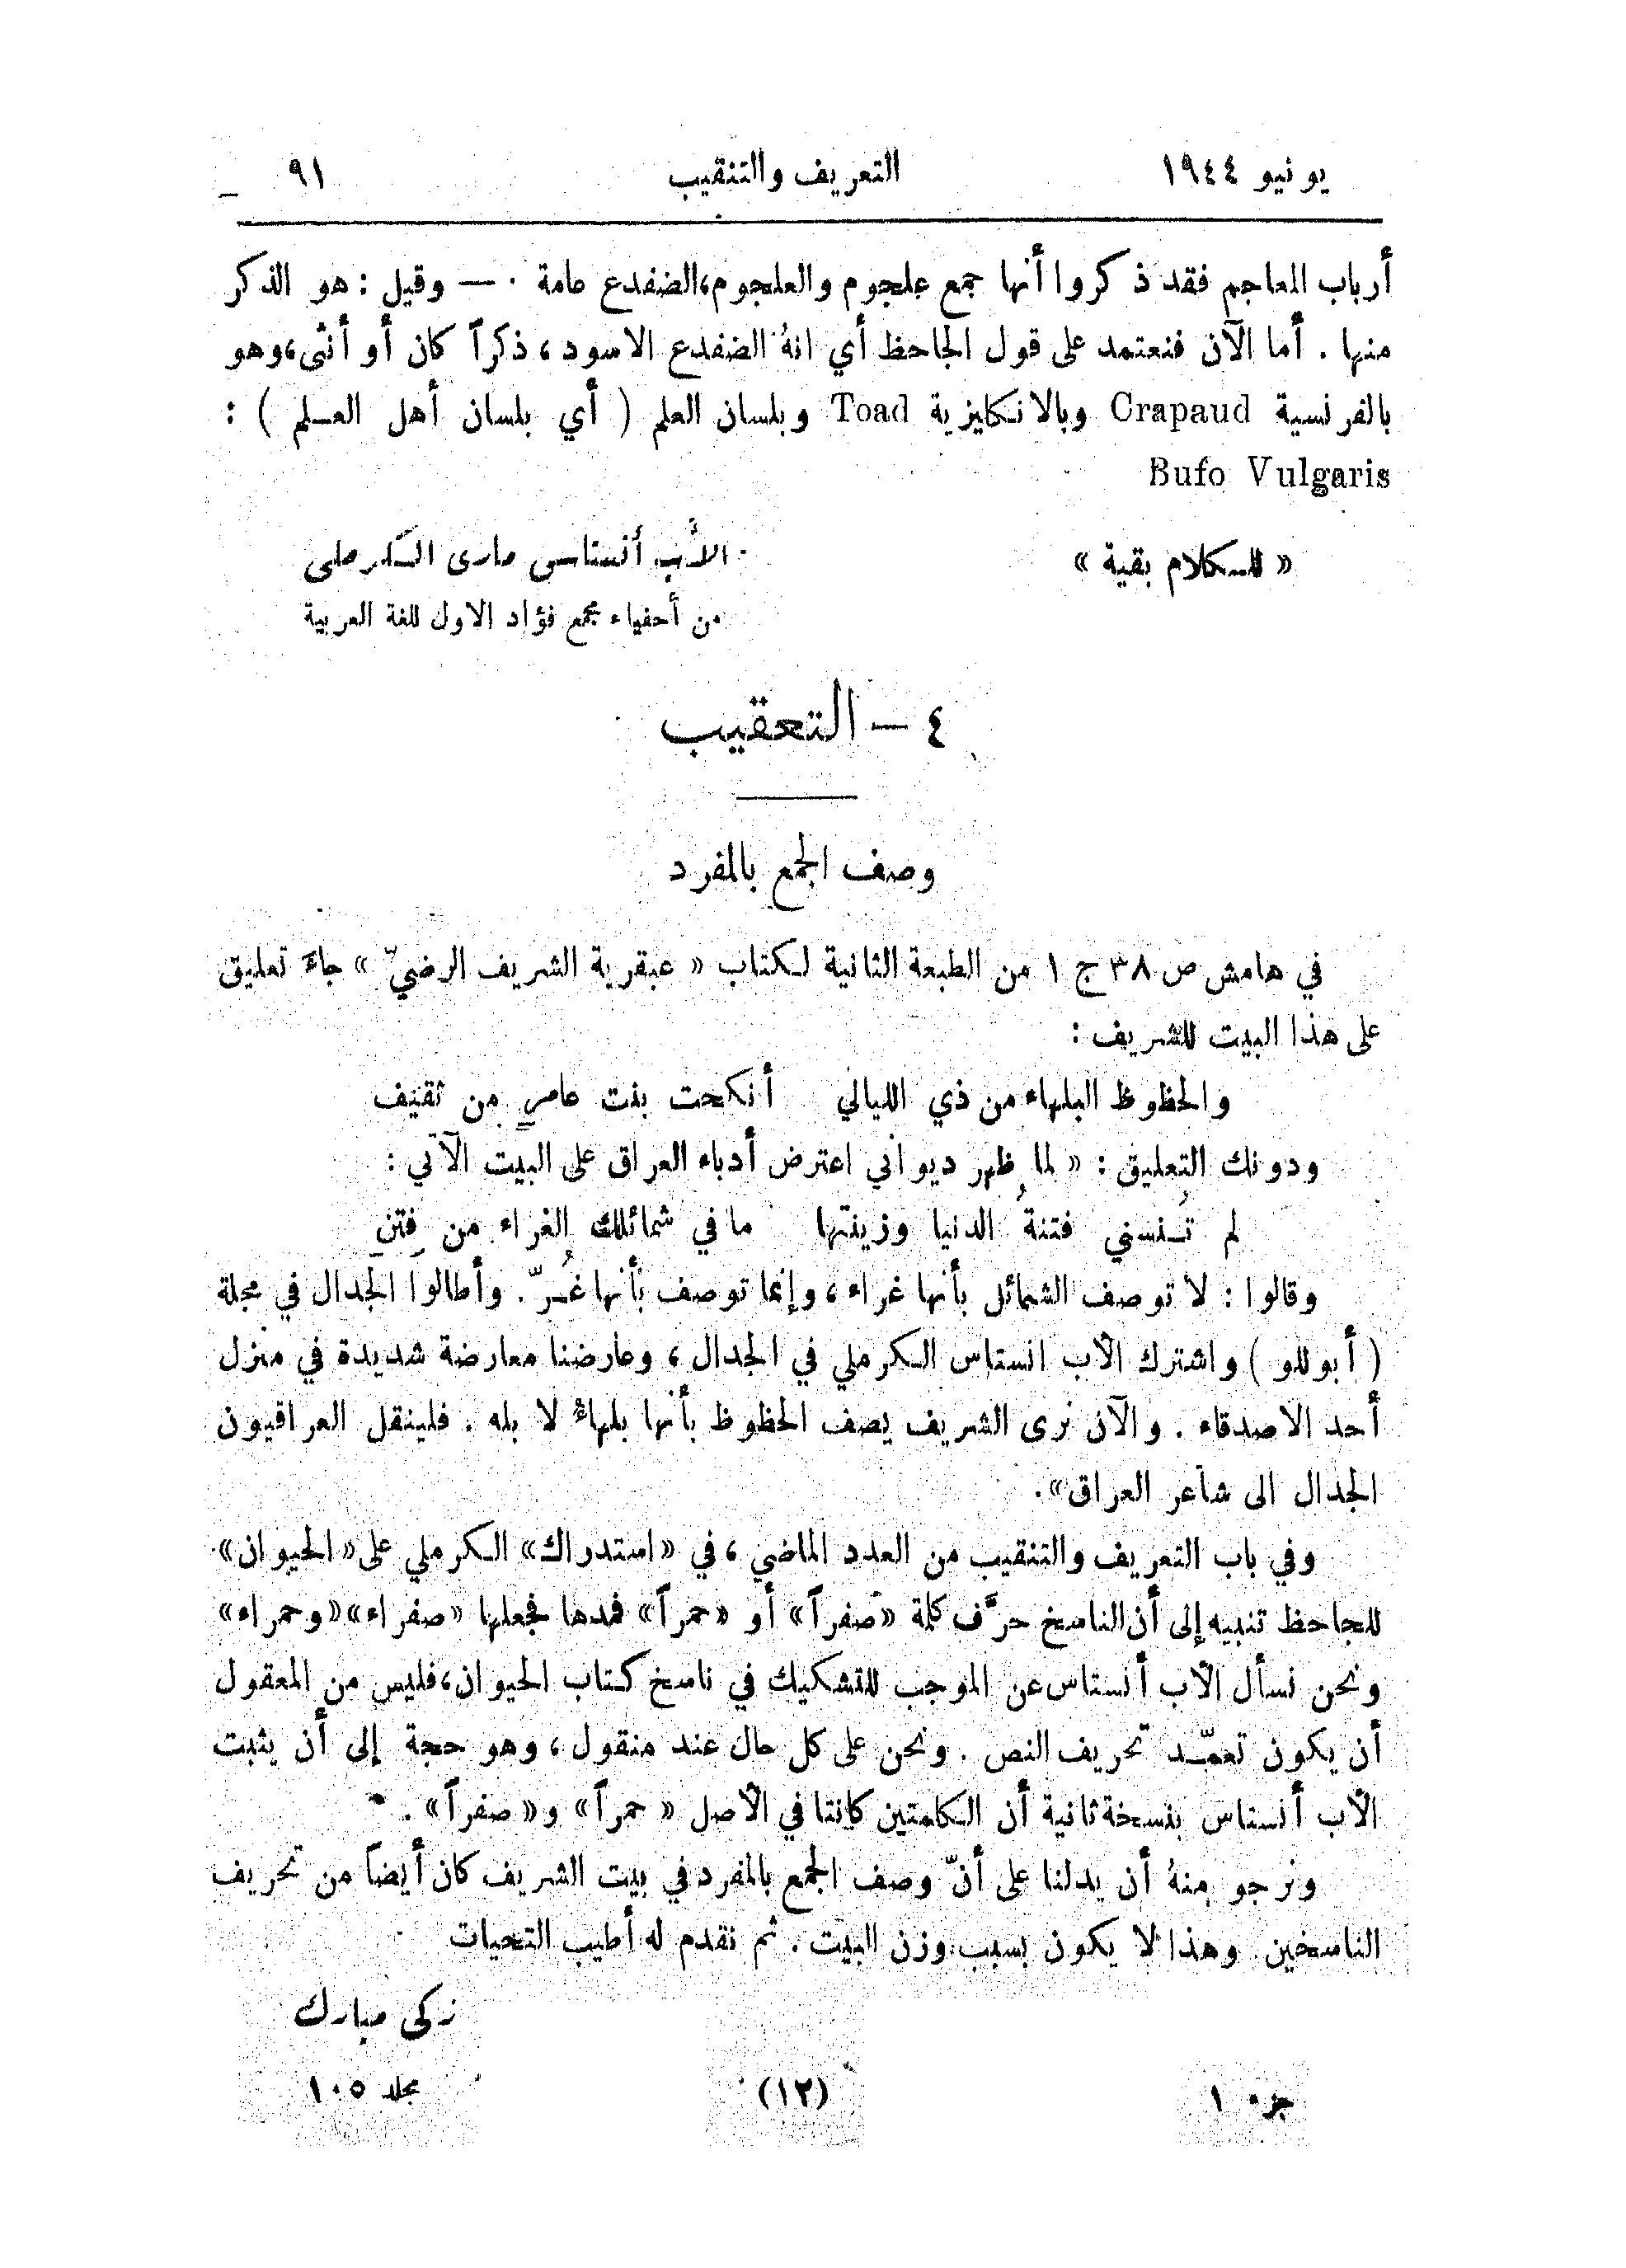 يونيو ١٩٤٤ التعريف والتنقيب ٩١
أرباب المعاجم فقد ذكروا أنها جمع علجوم والعلجوم، الضفدع عامة . — وقيل : هو الذكر
منها . أما الآن فنعتمد على قول الجاحظ أي انهُ الضفدع الاسود ، ذكراً كان أو أنثى، وهو
بالفرنسية Crapaud وبالانكليزية Toad وبلسان العلم ( أي بلسان أهل العـلم ) :
Bufo Vulgaris
« للـكلام بقية » الأب أنستاسى مارى الكرملى
من أحفياء مجمع فؤاد الاول للغة العربية
٤ — التعقيب
وصف الجمع بالمفرد
في هامش ص ٣٨ ج ١ من الطبعة الثانية لكتاب « عبقرية الشريف الرضيّ » جاءَ تعليق
على هذا البيت للشريف :
والحظوظ البلهاء من ذي الليالي أنكحت بنت عامرٍ من ثقيف
ودونك التعليق : « لما ظهر ديواني اعترض أدباء العراق على البيت الآتي :
لم تُـنسني فتنةُ الدنيا وزينتها ما في شمائلك الغراء من فِتَنِ
وقالوا : لا توصف الشمائل بأنها غراء ، وإنما توصف بأنها غُـرّ . وأطالوا الجدال في مجلة
( أبوللو ) واشترك الأب انستاس الكرملي في الجدال ، وعارضنا معارضة شديدة في منزل
أحد الاصدقاء . والآن نرى الشريف يصف الحظوظ بأنها بلهاءُ لا بله . فلينقل العراقيون
الجدال الى شاعر العراق».
وفي باب التعريف والتنقيب من العدد الماضي ، في «استدراك» الكرملي على «الحيوان»
للجاحظ تنبيه إلى أن الناسخ حرَّف كلمة «صفراً» أو «حمراً» فمدها فجعلها «صفراء» «وحمراء»
ونحن نسأل الأب أنستاس عن الموجب للتشكيك في ناسخ كتاب الحيوان، فليس من المعقول
أن يكون تعمّـد تحريف النص . ونحن على كل حال عند منقول ، وهو حجة إلى أن يثبت
الأب أنستاس بنسخة ثانية أن الكلمتين كانتا في الأصل « حمراً» و« صفراً» .
ونرجو منهُ أن يدلنا على أنّ وصف الجمع بالمفرد في بيت الشريف كان أيضاً من تحريف
الناسخين وهذا لا يكون بسبب وزن البيت . ثم نقدم له أطيب التحيات
زكى مبارك
جزء ١ (١٢) مجلد ١٠٥